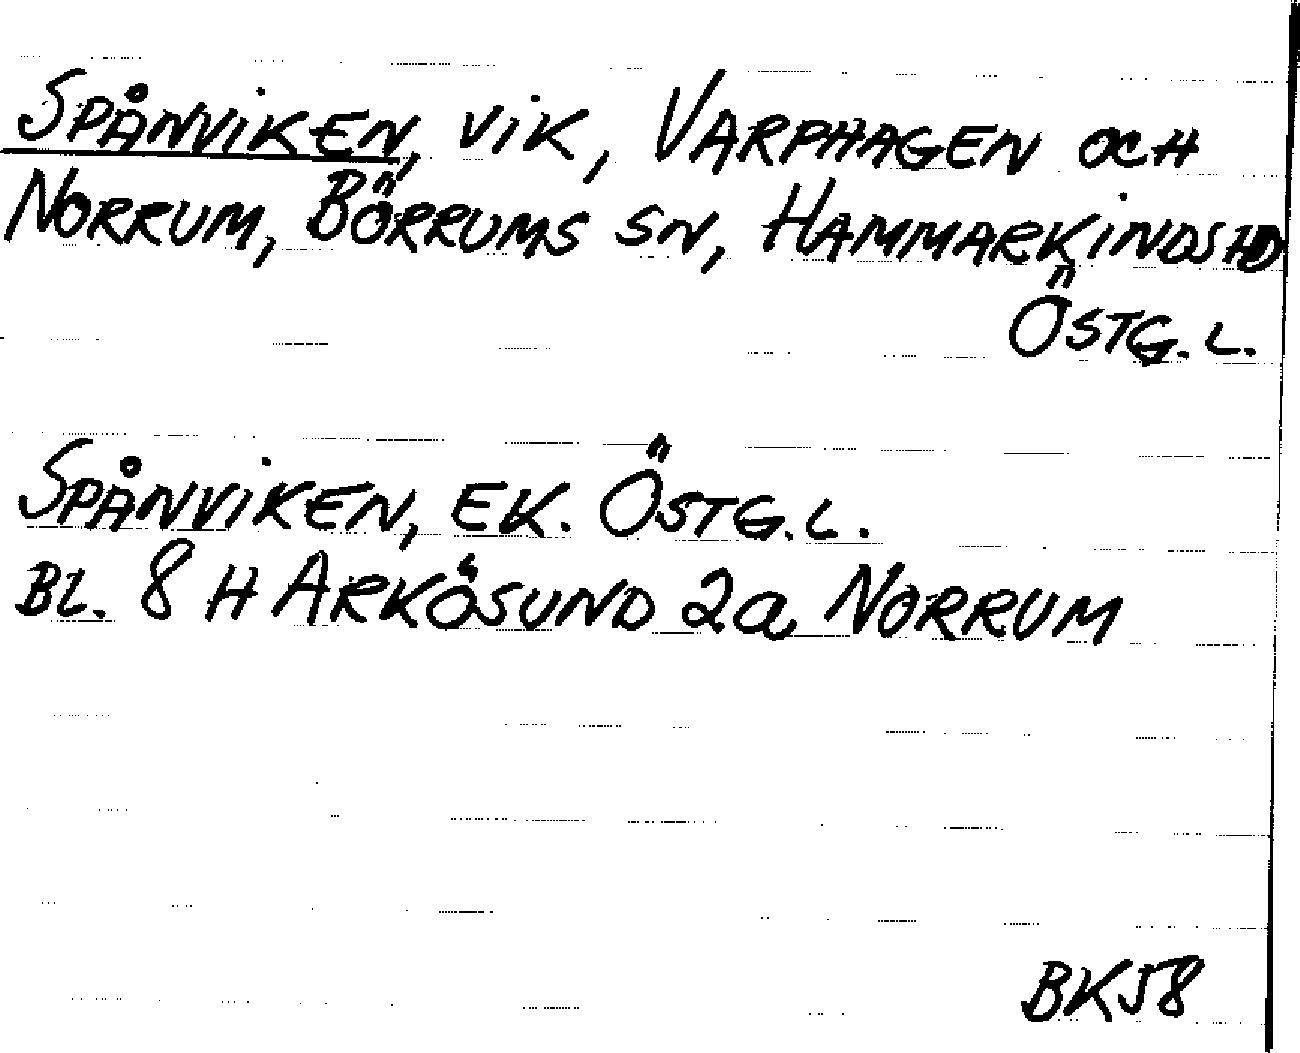 SPÅNVIKEN, VIK, VARPHAGEN OCH
NORRUM, BÖRRUMS SN, HAMMARKINDS HD
ÖSTG. L.
SPÅNVIKEN, EK. ÖSTG. L.
BL. 8 H ARKÖSUND 2a NORRUM
BK58